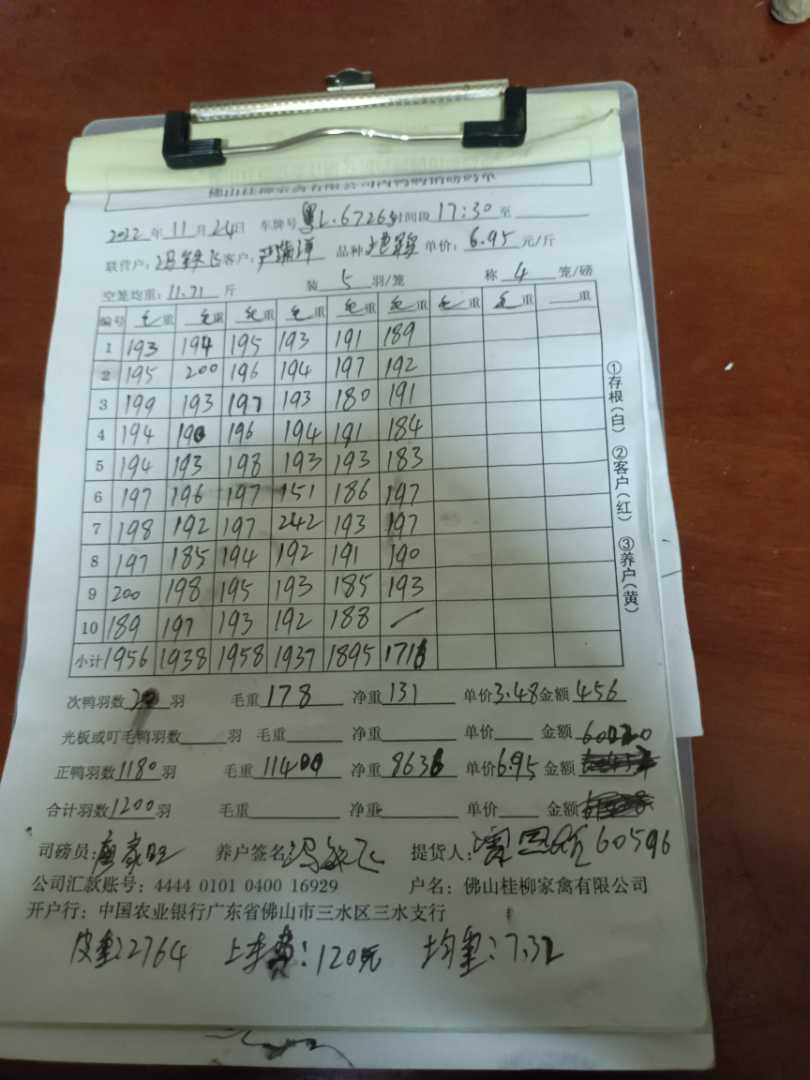 2022年11月24日 车牌号粤L.67265时间段17:30至
联营户:冯铁飞客户: 品种 单价:6.95元/斤
空笼均重:11.71斤 装5羽/笼 称4笼/磅
编号 毛重 毛重 毛重 毛重 毛重 毛重 毛重 毛重 重
1 193 194 195 193 191 189
2 195 200 196 194 197 192
3 199 193 197 193 180 191
4 194 190 196 194 191 184
5 194 193 198 193 193 183
6 197 196 197 151 186 197
7 198 192 197 242 193 197
8 197 185 194 192 191 190
9 200 198 195 193 185 193
10 189 197 193 192 188 —
小计 1956 1938 1958 1937 1895 1716
①存根(白) ②客户(红) ③养户(黄)
次鸭羽数20羽 毛重178 净重131 单价3.48金额456
光板或叮毛鸭羽数 羽 毛重 净重 单价 金额
60020
正鸭羽数1180羽 毛重11400 净重8636 单价6.95 金额
合计羽数1200羽 毛重 净重 单价 金额
司磅员:廖家旺 养户签名:冯铁飞 提货人: 60596
公司汇款账号:4444 0101 0400 16929 户名:佛山桂柳家禽有限公司
开户行:中国农业银行广东省佛山市三水区三水支行
皮重:2764 上车费:120元 均重:7.32